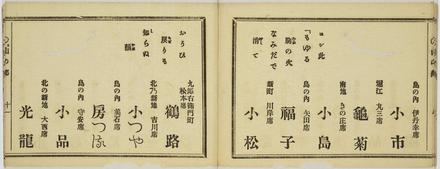 島の内 伊丹幸席
小市
堀江 丸三席
龜菊
南地 きの庄席
小島
島の内 矢田席
福子
新町 川岸席
小松
ヨシ此
「もゆる
胸の火
なみだで
消て
九郎右衛門町
松本席
鶴路
北乃新地 吉川席
小つや
島の内 美石席
房つる
島の内 守安席
小品
北の新地 大西席
光龍
おもひ
戻りも
知らぬ
顔
十一